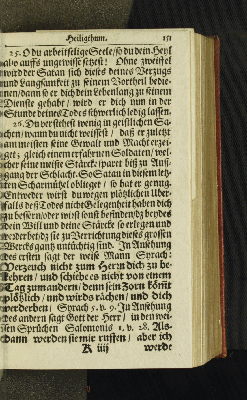 Heiligthum. 151
25. O du arbeitselige Seele / so du dein Heyl
also auffs ungewisse setzest! Ohne zweiffel
wird der Satan sich dieses deines Verzugs
und Langsamkeit zu seinem Vortheil bedie-
nen / dann so er dich dein lebenlang zu seinem
Dienste gehabt / wird er dich nun in der
Stunde deines Todes schwerlich ledig lassen.
26. Du verstehest wenig in geistlichen Sa-
chen / wann du nicht weissest / daß er zuletzt
am meisten seine Gewalt und Macht erzei-
get; gleich einem erfahrnen Soldaten / wel-
cher seine meiste Stärcke spart biß zu Auß-
gang der Schlacht. So Satan in diesem letz-
ten Scharmützel oblieget / so hat er genug.
Entweder wirst du wegen plötzlichen Uber-
falls deß Todes nicht Gelegenheit haben dich
zu bessern / oder wirst sonst befinden / dz beydes
dein Will und deine Stärcke so erlegen und
weder bet dz sie zu Verrichtung dieses grossen
Wercks gantz untüchtig sind. In Ansehung
des ersten sagt der weise Mann Syrach:
Verzeuch nicht zum Herrn dich zu be-
kehren / und schiebe es nicht von einem
Tag zum andern / denn sein Zorn kömt
plötzlich / und wirds rächen / und dich
verderben / Syrach 5. v. 9. In Ansehung
des andern sagt Gott der Herr / in den wei-
sen Sprüchen Salomonis 1. v. 28. Als-
dann werden sie mir ruffen / aber ich
K iiij werde